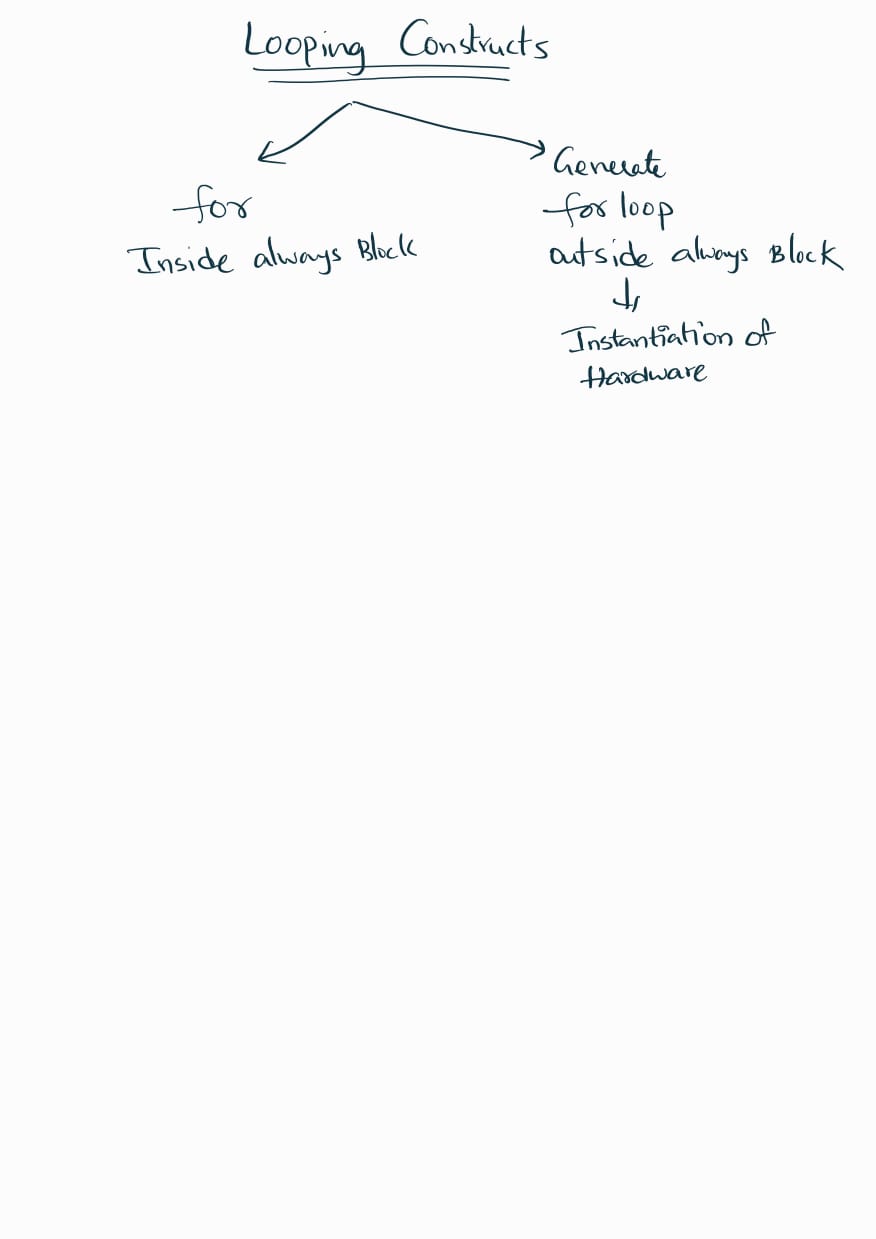 Looping Constructs
for
Inside always Block
Generate
for loop
outside always Block
Instantiation of
Hardware